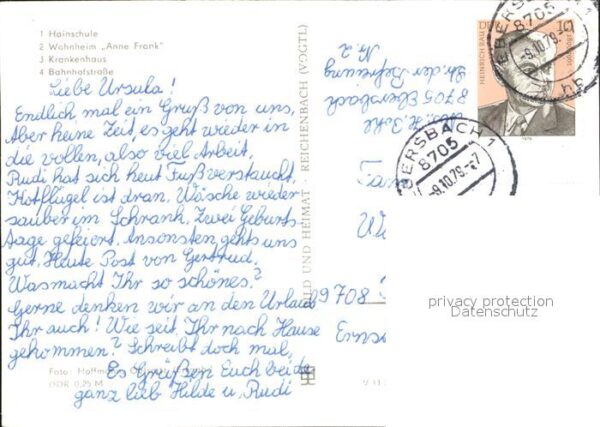 1 Hainschule
2 Wohnheim „Anne Frank"
3 Krankenhaus
4 Bahnhofstraße
Liebe Ursula!
Endlich mal ein Gruß von uns,
Aber keine Zeit, es geht wieder in
die vollen, also viel Arbeit,
Rudi hat sich heut Fuß verstaucht
Kotflügel ist dran. Wäsche wieder
sauber im Schrank, Zwei Geburts-
tage gefeiert, Ansonsten gehts uns
gut, Heute Post von Gertrud,
Was macht Ihr so schönes?
Gerne denken wir an den Urlaub
Ihr auch! Wie seit Ihr nach Hause
gekommen? Schreibt doch mal,
Es Grüßen Euch beide
ganz lieb Hilde u. Rudi
Foto: Hoffmann
DDR 0,25 M
BILD UND HEIMAT · REICHENBACH (VOGTL)
8705 Ebersbach
Str. der Befreiung
Nr. 2
9708
HEINRICH RAU
DDR
10
EBERSBACH 1
8705
-9.10.79-7
EBERSBACH 1
8705
-9.10.79-7
privacy protection
Datenschutz